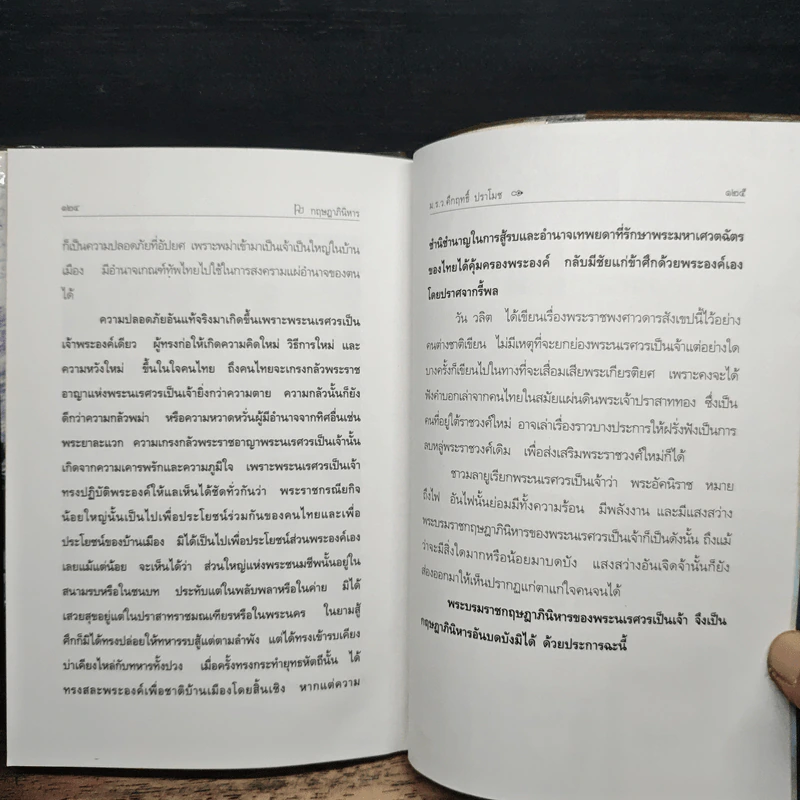 ๑๒๔
กฤษฎาภินิหาร
ก็เป็นความปลอดภัยที่อัปยศ เพราะพม่าเข้ามาเป็นเจ้าเป็นใหญ่ในบ้าน
เมือง มีอำนาจเกณฑ์ทัพไทยไปใช้ในการสงครามแผ่อำนาจของตน
ได้
ความปลอดภัยอันแท้จริงมาเกิดขึ้นเพราะพระนเรศวรเป็น
เจ้าพระองค์เดียว ผู้ทรงก่อให้เกิดความคิดใหม่ วิธีการใหม่ และ
ความหวังใหม่ ขึ้นในใจคนไทย ถึงคนไทยจะเกรงกลัวพระราช
อาญาแห่งพระนเรศวรเป็นเจ้ายิ่งกว่าความตาย ความกลัวนั้นก็ยัง
ดีกว่าความกลัวพม่า หรือความหวาดหวั่นผู้มีอำนาจจากทิศอื่นเช่น
พระยาละแวก ความเกรงกลัวพระราชอาญาพระนเรศวรเป็นเจ้านั้น
เกิดจากความเคารพรักและความภูมิใจ เพราะพระนเรศวรเป็นเจ้า
ทรงปฏิบัติพระองค์ให้แลเห็นได้ชัดทั่วกันว่า พระราชกรณียกิจ
น้อยใหญ่นั้นเป็นไปเพื่อประโยชน์ร่วมกันของคนไทยและเพื่อ
ประโยชน์ของบ้านเมือง มิได้เป็นไปเพื่อประโยชน์ส่วนพระองค์เอง
เลยแม้แต่น้อย จะเห็นได้ว่า ส่วนใหญ่แห่งพระชนมชีพนั้นอยู่ใน
สนามรบหรือในชนบท ประทับแต่ในพลับพลาหรือในค่าย มิได้
เสวยสุขอยู่แต่ในปราสาทราชมณเฑียรหรือในพระนคร ในยามสู้
ศึกก็มิได้ทรงปล่อยให้ทหารรบสู้แต่ตามลำพัง แต่ได้ทรงเข้ารบเคียง
บ่าเคียงไหล่กับทหารทั้งปวง เมื่อครั้งทรงกระทำยุทธหัตถีนั้น ได้
ทรงสละพระองค์เพื่อชาติบ้านเมืองโดยสิ้นเชิง หากแต่ความ
ม.ร.ว.คึกฤทธิ์ ปราโมช
๑๒๕
ชำนิชำนาญในการสู้รบและอำนาจเทพยดาที่รักษาพระมหาเศวตฉัตร
ของไทยได้คุ้มครองพระองค์ กลับมีชัยแก่ข้าศึกด้วยพระองค์เอง
โดยปราศจากรี้พล
วัน วลิต ได้เขียนเรื่องพระราชพงศาวดารสังเขปนี้ไว้อย่าง
คนต่างชาติเขียน ไม่มีเหตุที่จะยกย่องพระนเรศวรเป็นเจ้าแต่อย่างใด
บางครั้งก็เขียนไปในทางที่จะเสื่อมเสียพระเกียรติยศ เพราะคงจะได้
ฟังคำบอกเล่าจากคนไทยในสมัยแผ่นดินพระเจ้าปราสาททอง ซึ่งเป็น
คนที่อยู่ใต้ราชวงศ์ใหม่ อาจเล่าเรื่องราวบางประการให้ฝรั่งฟังเป็นการ
ลบหลู่พระราชวงศ์เดิม เพื่อส่งเสริมพระราชวงศ์ใหม่ก็ได้
ชาวมลายูเรียกพระนเรศวรเป็นเจ้าว่า พระอัคนิราช หมาย
ถึงไฟ อันไฟนั้นย่อมมีทั้งความร้อน มีพลังงาน และมีแสงสว่าง
พระบรมราชกฤษฎาภินิหารของพระนเรศวรเป็นเจ้าก็เป็นดังนั้น ถึงแม้
ว่าจะมีสิ่งใดมากหรือน้อยมาบดบัง แสงสว่างอันเจิดจ้านั้นก็ยัง
ส่องออกมาให้เห็นปรากฏแก่ตาแก่ใจคนจนได้
พระบรมราชกฤษฎาภินิหารของพระนเรศวรเป็นเจ้า จึงเป็น
กฤษฎาภินิหารอันบดบังมิได้ ด้วยประการฉะนี้